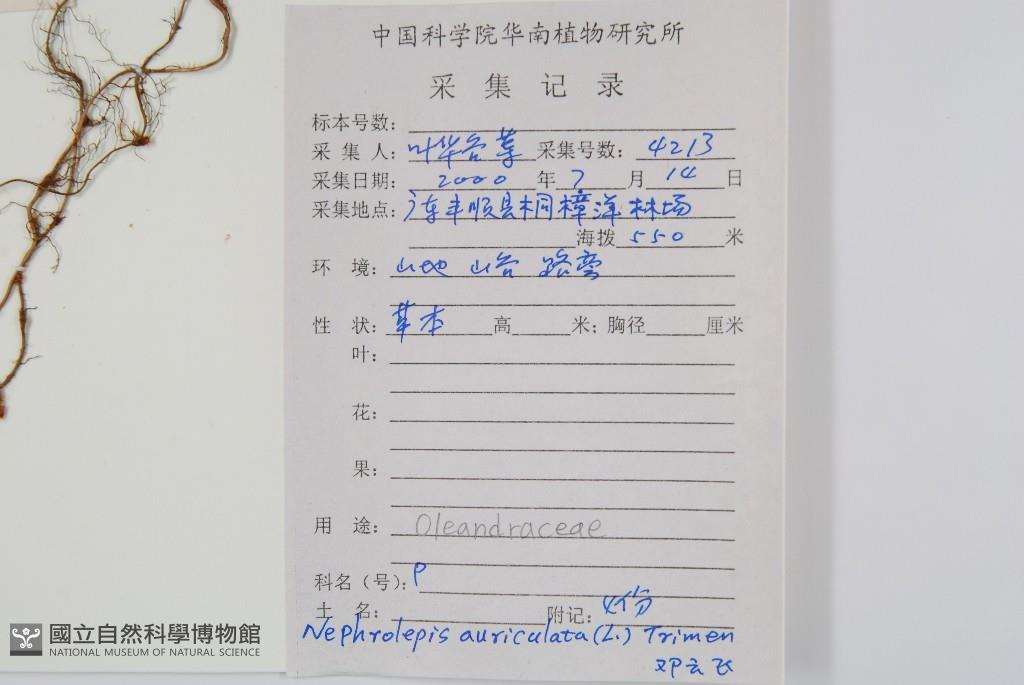 中国科学院华南植物研究所
采集记录
标本号数：
采集人：叶华谷等 采集号数：4213
采集日期：2000年7月14日
采集地点：广东丰顺县桐樟洋林场
海拨550米
环境：山地 山谷 路旁
性状：草本 高 米；胸径 厘米
叶：
花：
果：
用途：Oleandraceae
科名（号）：P
土名： 附记：4份
Nephrolepis auriculata (L.) Trimen
邓云飞
國立自然科學博物館
NATIONAL MUSEUM OF NATURAL SCIENCE